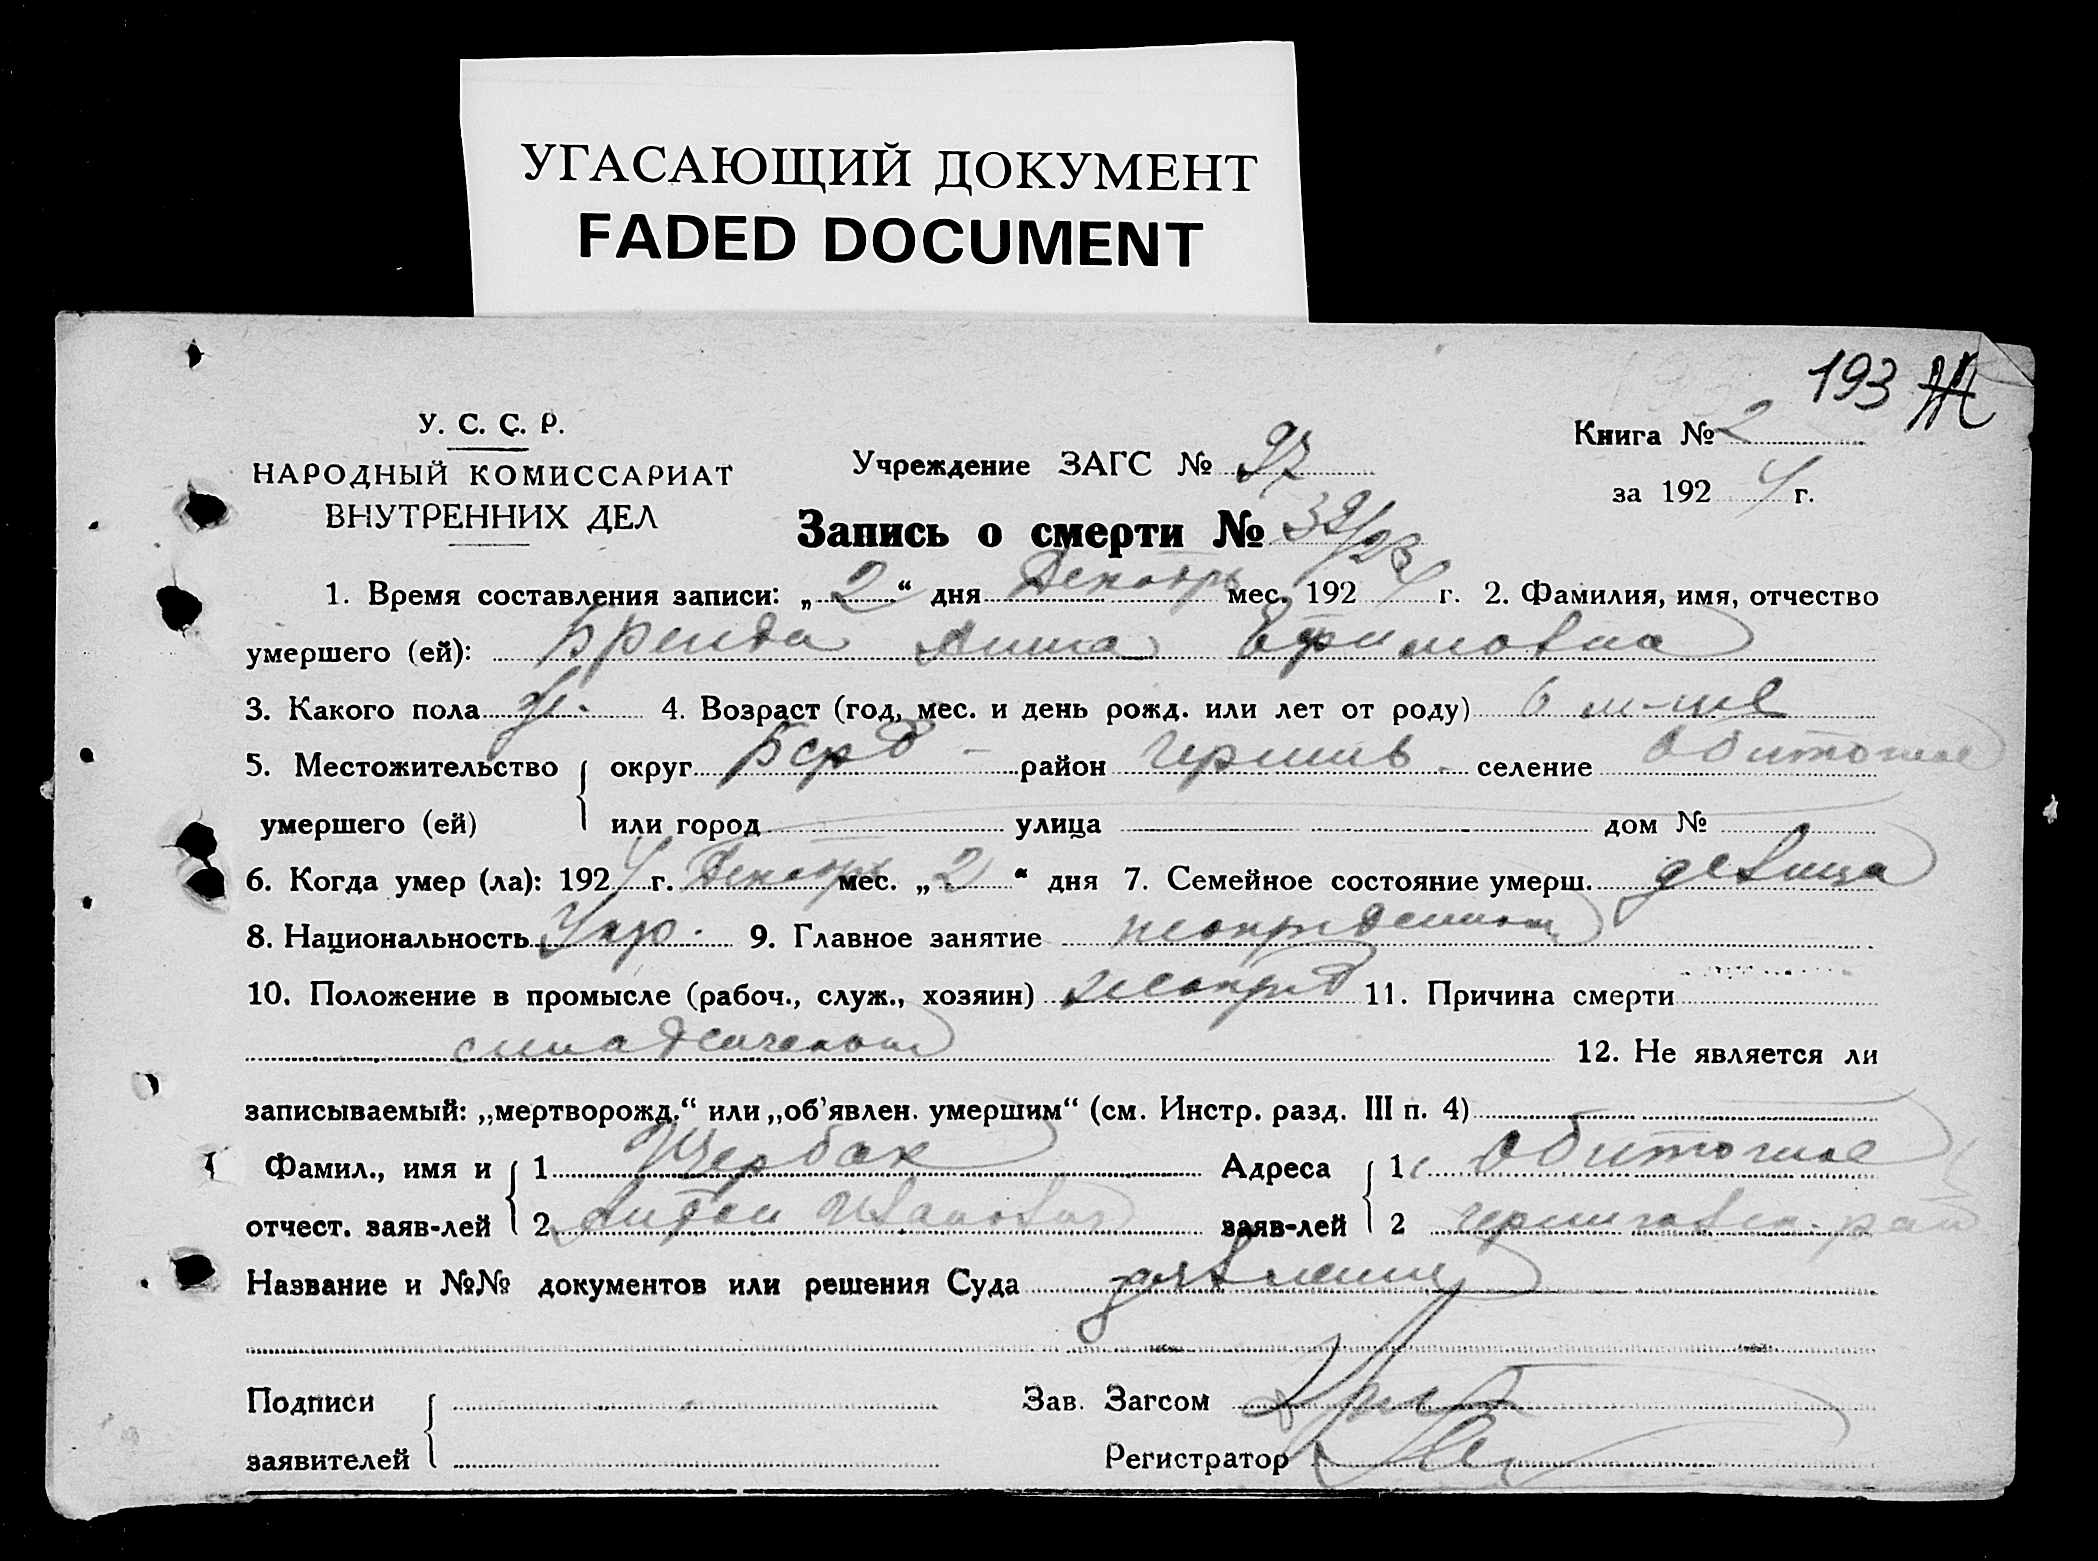 УГАСАЮЩИЙ ДОКУМЕНТ
FADED DOCUMENT
193
У. С. С. Р.
НАРОДНЫЙ КОМИССАРИАТ
ВНУТРЕННИХ ДЕЛ
Учреждение ЗАГС №
Книга № 2
за 1924 г.
Запись о смерти №
1. Время составления записи: „2“ дня Декабрь мес. 1924 г. 2. Фамилия, имя, отчество
умершего (ей): Анна Ефимовна
3. Какого пола ж. 4. Возраст (год, мес. и день рожд. или лет от роду) 6 м-цев
5. Местожительство округ Берд район Черниив. селение Обиточное
умершего (ей) или город улица дом №
6. Когда умер (ла): 1924 г. Декабрь мес. „2“ дня 7. Семейное состояние умерш. девица
8. Национальность Укр. 9. Главное занятие
10. Положение в промысле (рабоч., служ., хозяин) 11. Причина смерти
12. Не является ли
записываемый: „мертворожд.“ или „об’явлен. умершим“ (см. Инстр. разд. III п. 4)
Фамил., имя и 1 Щербак Адреса 1 Обиточное
отчест. заяв-лей 2 Иванович заяв-лей 2
Название и №№ документов или решения Суда
Подписи Зав. Загсом
заявителей Регистратор